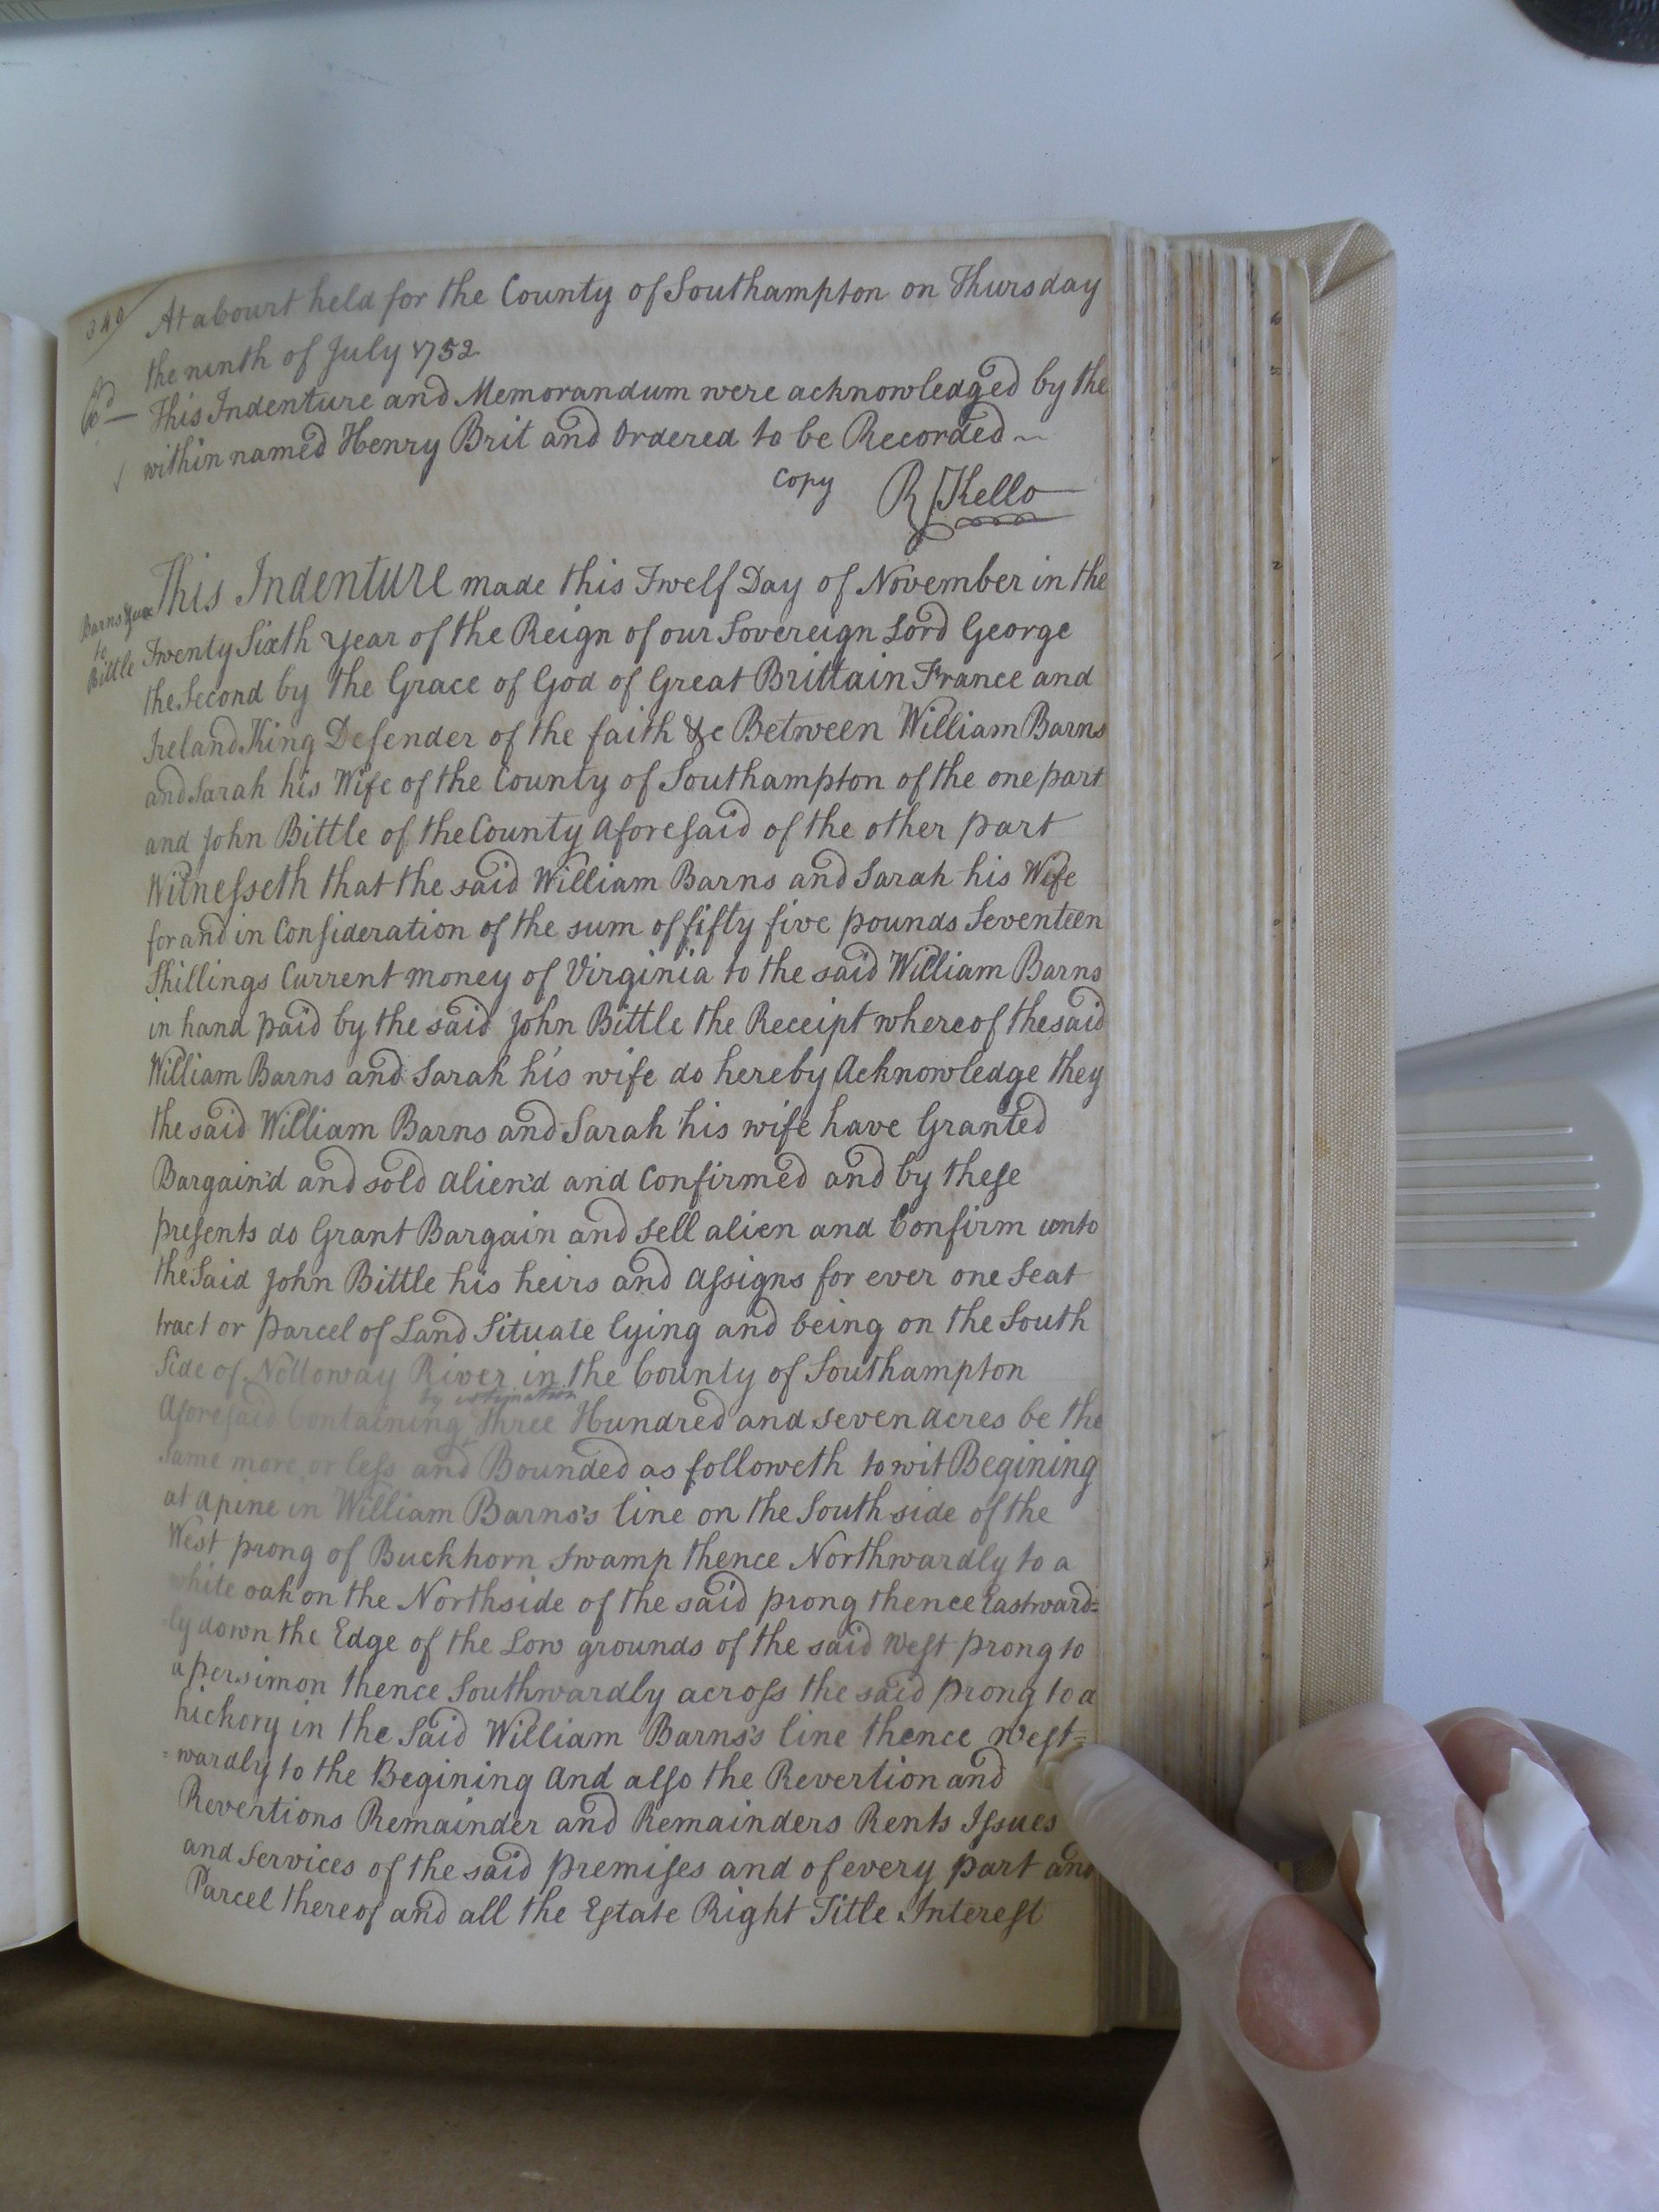 340
At a Court held for the County of Southampton on Thursday
the ninth of July 1752
This Indenture and Memorandum were acknowledged by the
within named Henry Brit and Ordered to be Recorded ~
Copy R Kello
Barns &
to
Bittle
This Indenture made this Twelf Day of November in the
Twenty Sixth year of the Reign of our Sovereign Lord George
the Second by the Grace of God of Great Brittain France and
Ireland King Defender of the faith &c Between William Barns
and Sarah his Wife of the County of Southampton of the one part
and John Bittle of the County Aforesaid of the other part
Witnesseth that the said William Barns and Sarah his Wife
for and in Consideration of the sum of fifty five pounds Seventeen
Shillings Current money of Virginia to the said William Barns
in hand paid by the said John Bittle the Receipt whereof the said
William Barns and Sarah his wife do hereby Acknowledge they
the said William Barns and Sarah his wife have Granted
Bargain'd and sold alien'd and Confirmed and by these
presents do Grant Bargain and sell alien and Confirm unto
the Said John Bittle his heirs and assigns for ever one Seat
tract or parcel of Land Situate lying and being on the South
Side of Nottoway River in the County of Southampton
by estimation
Aforesaid Containing Three Hundred and seven acres be the
Same more or less and Bounded as followeth to wit Begining
at a pine in William Barns's line on the South side of the
West prong of Buckhorn Swamp thence Northwardly to a
white oak on the North side of the said prong thence Eastward=
ly down the Edge of the Low grounds of the said West prong to
a persimon thence Southwardly across the said prong to a
hickory in the Said William Barns's line thence West=
=wardly to the Begining and also the Revertion and
Revertions Remainder and Remainders Rents Issues
and Services of the said premises and of every part and
Parcel thereof and all the Estate Right Title Interest